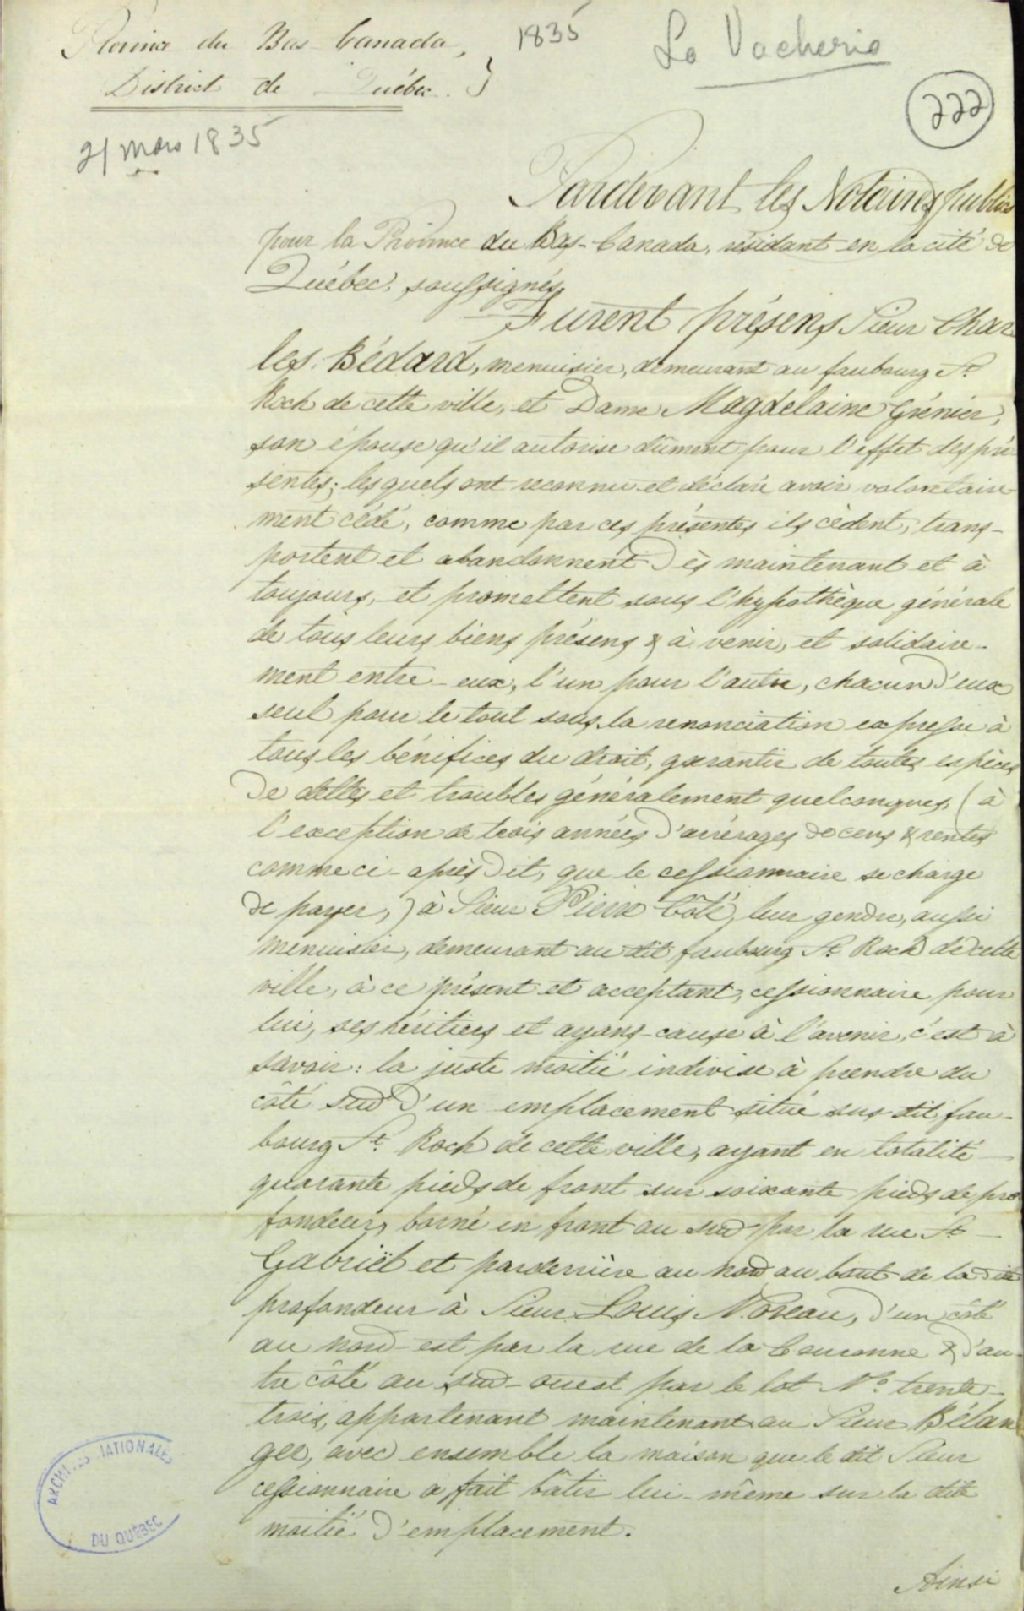 Province du Bas-Canada,
District de Québec. }
1835
La Vacherie
222
21 mars 1835
Pardevant les Notaires publics
pour la Province du Bas-Canada, résidant en la cité de
Québec, soussignés,
Furent présens Sieur Char
les Bédard, menuisier, demeurant au faubourg St
Roch de cette ville, et Dame Magdelaine Grénier,
son épouse qu'il autorise dûment pour l'effet des pré
sentes; lesquels ont reconnu et déclaré avoir volontaire-
ment cédé, comme par ces présentes ils cèdent, trans-
portent et abandonnent dès maintenant et à
toujours, et promettent sous l'hypothèque générale
de tous leurs biens présens & à venir, et solidaire-
ment entre-eux, l'un pour l'autre, chacun d'eux
seul pour le tout sous la renonciation expresse à
tous les bénifices du droit, garantir de toutes espèces
de dettes et troubles généralement quelconques, (à
l'exception de trois années d'arrérages de cens & rentes
comme ci-après dit, que le cessionnaire se charge
de payer,) à Sieur Pierre Côté, leur gendre, aussi
menuisier, demeurant au dit faubourg St Roch de cette
ville, à ce présent et acceptant, cessionnaire pour
lui, ses héritiers et ayans-cause à l'avenir, c'est à
savoir: la juste moitié indivise à prendre du
côté sud d'un emplacement situé sus-dit fau-
bourg St Roch de cette ville, ayant en totalité
quarante pieds de front sur soixante pieds de pro
fondeur, borné en front au sud par la rue St
Gabriël et parderrière au nord au bout de la dite
profondeur à Sieur Louis Moreau, d'un côté
au nord-est par la rue de la Couronne & d'au-
tre côté au sud-ouest par le lot No. trente-
trois, appartenant maintenant au Sieur Bélan
ger, avec ensemble la maison que le dit Sieur
cessionnaire a fait bâtir lui-même sur la dite
moitié d'emplacement.
Ainsi
ARCHIVES NATIONALES
DU QUÉBEC